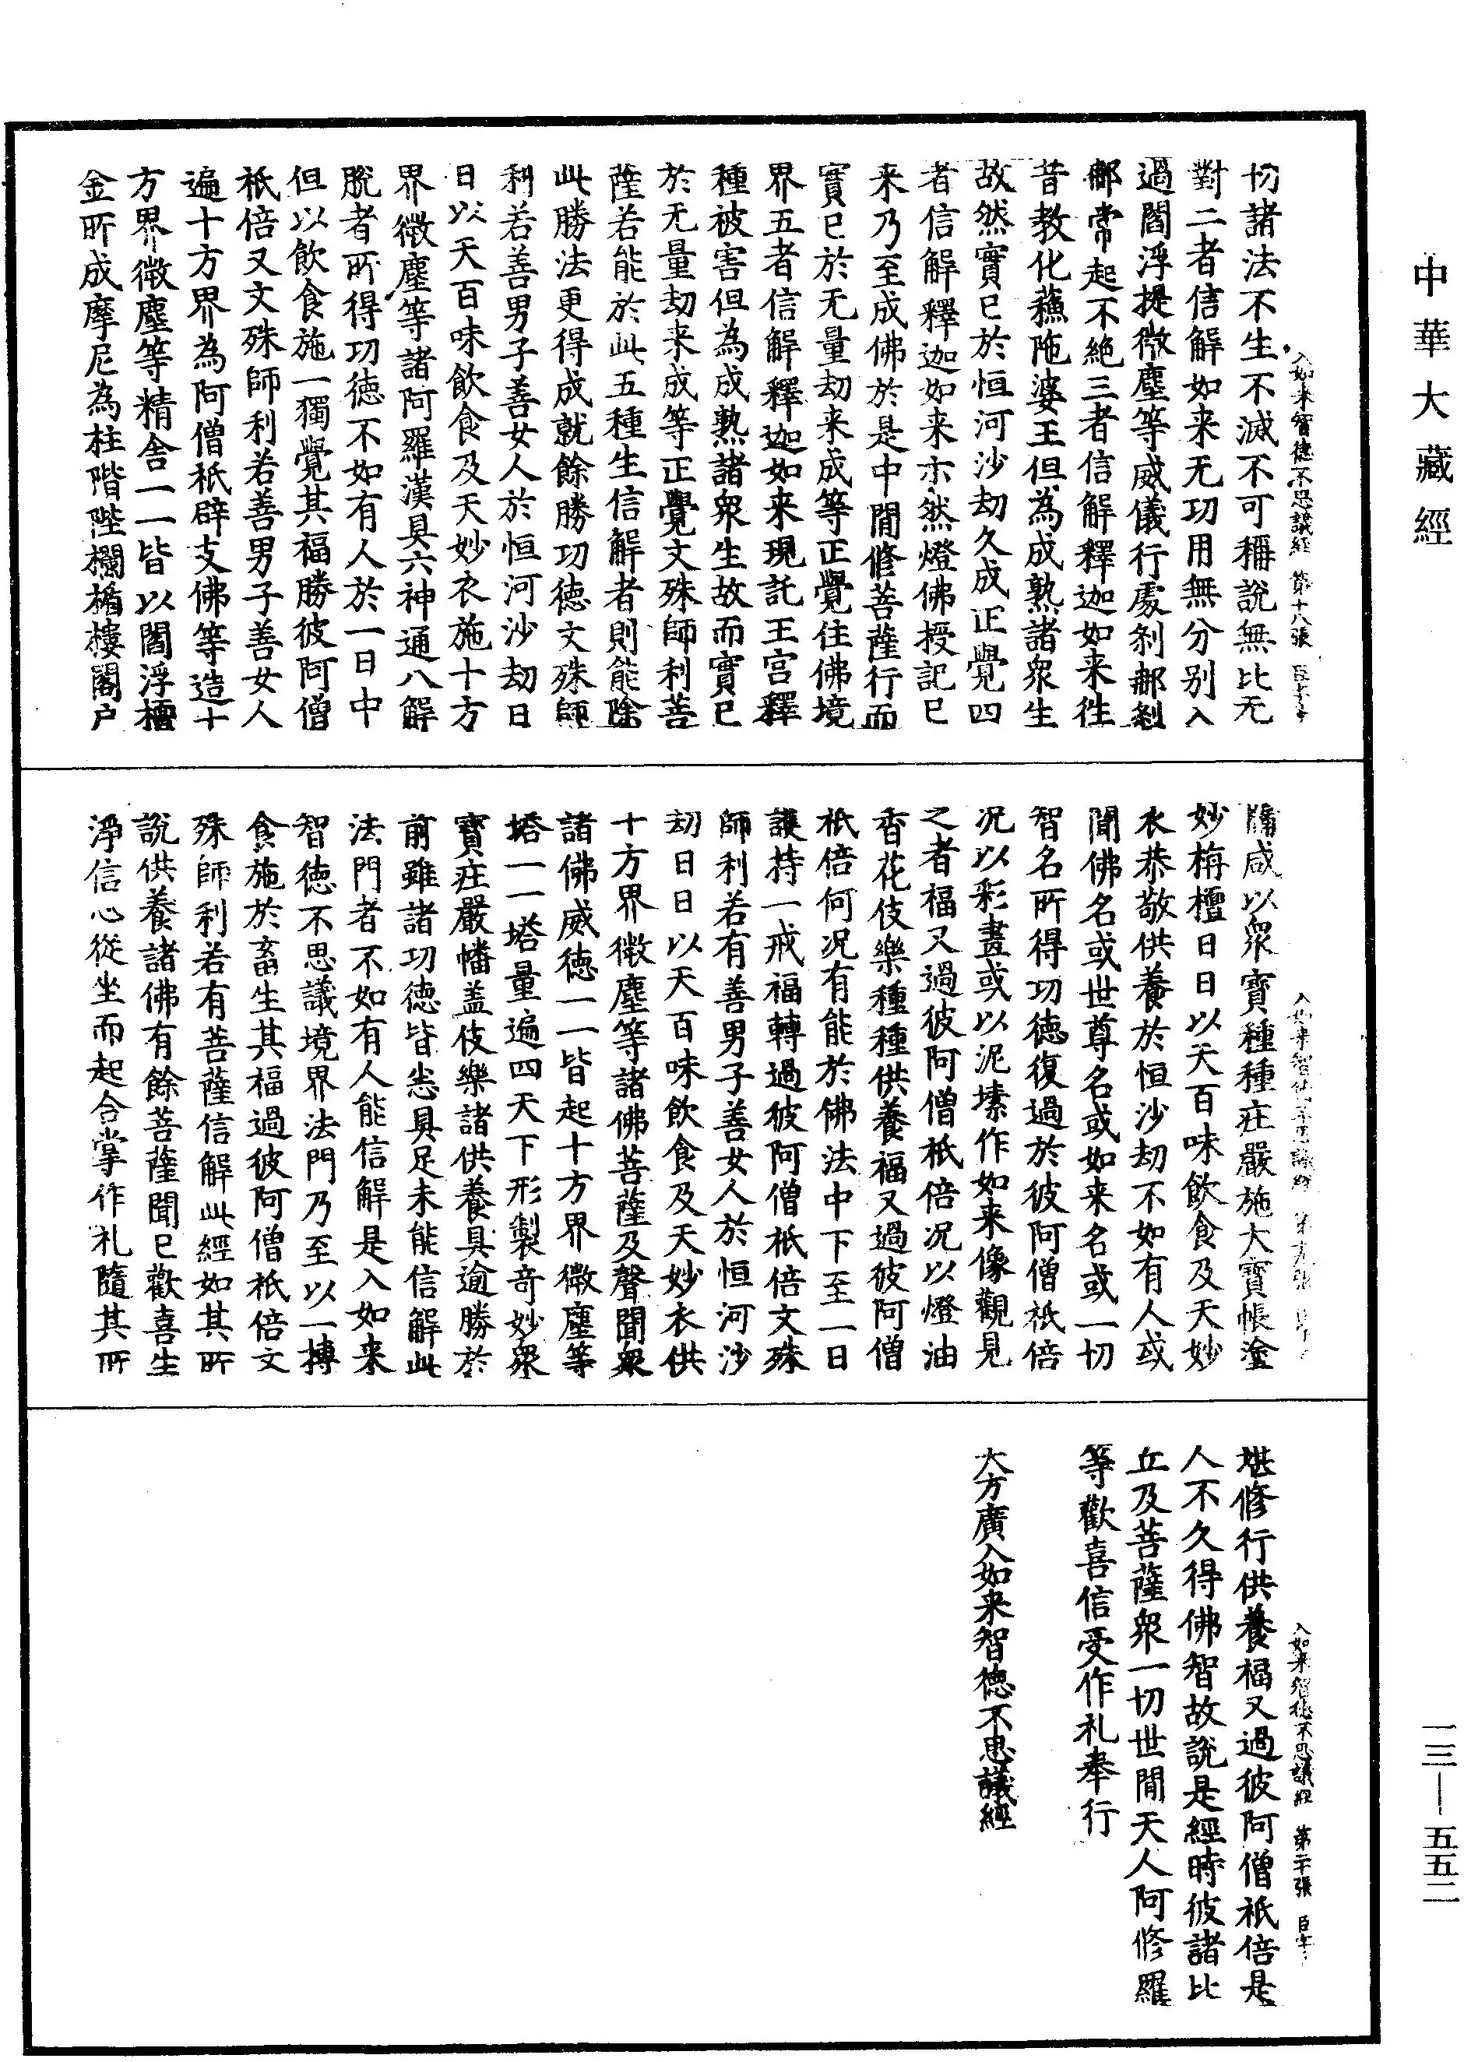 中華大藏經
入如来智德不思議經 第十八張
切諸法不生不滅不可稱說無比无
對二者信解如来无功用無分别入
過閻浮提微塵等威儀行處刹那刹
那常起不絶三者信解釋迦如来往
昔教化蘓陁婆王但為成熟諸衆生
故然實已於恒河沙刼久成正覺四
者信解釋迦如来亦然燈佛授記已
来乃至成佛於是中閒修菩薩行而
實已於无量刧来成等正覺住佛境
界五者信解釋迦如来現託王宫釋
種被害但為成熟諸衆生故而實已
於无量刧来成等正覺文殊師利菩
薩若能於此五種生信解者則能除
此勝法更得成就餘勝功徳文殊師
利若善男子善女人於恒河沙刼日
日以天百味飲食及天妙衣施十方
界微塵等諸阿羅漢具六神通八解
脫者所得功徳不如有人於一日中
但以飲食施一獨覺其福勝彼阿僧
祇倍又文殊師利若善男子善女人
遍十方界為阿僧祇辟支佛等造十
方界微塵等精舎一一皆以閻浮檀
金所成摩尼為柱階陛欄楯樓閣户
牖咸以衆寶種種莊嚴施大寶帳塗
妙栴檀日日以天百味飲食及天妙
衣恭敬供養於恒沙刼不如有人或
聞佛名或世尊名或如来名或一切
智名所得功徳復過於彼阿僧祇倍
况以彩畫或以泥塐作如来像觀見
之者福又過彼阿僧祇倍况以燈油
香花伎樂種種供養福又過彼阿僧
祇倍何况有能於佛法中下至一日
護持一戒福轉過彼阿僧祇倍文殊
師利若有善男子善女人於恒河沙
刼日日以天百味飲食及天妙衣供
十方界微塵等諸佛菩薩及聲聞衆
諸佛威徳一一皆起十方界微塵等
塔一一塔量遍四天下形製奇妙衆
寶莊嚴幡盖伎樂諸供養具逾勝於
前雖諸功徳皆悉具足未能信解此
法門者不如有人能信解是入如来
智徳不思議境界法門乃至以一摶
食施於畜生其福過彼阿僧祇倍文
殊師利若有菩薩信解此經如其所
說供養諸佛有餘菩薩聞已歡喜生
淨信心從坐而起合掌作礼隨其所
入如来智徳不思議經 第二十張
堪修行供養福又過彼阿僧祇倍是
人不久得佛智故說是經時彼諸比
丘及菩薩衆一切世閒天人阿修羅
等歡喜信受作礼奉行
大方廣入如来智徳不思議經
一三—五五二